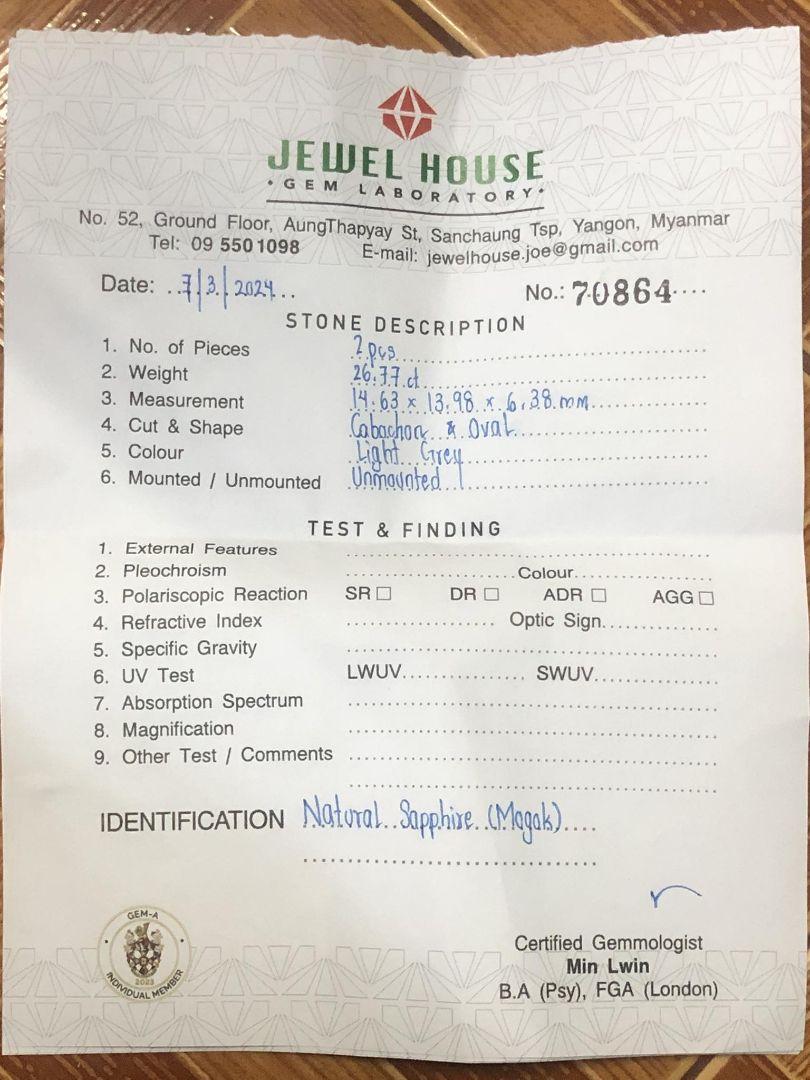 JEWEL HOUSE
• GEM LABORATORY •
No. 52, Ground Floor, AungThapyay St, Sanchaung Tsp, Yangon, Myanmar
Tel: 09 5501098 E-mail: jewelhouse.joe@gmail.com
Date: 7/3/2024 No.: 70864
STONE DESCRIPTION
1. No. of Pieces 2 pcs
2. Weight 26.77 ct
3. Measurement 14.63 x 13.98 x 6.38 mm
4. Cut & Shape Cabachon & Oval
5. Colour Light Grey
6. Mounted / Unmounted Unmounted
TEST & FINDING
1. External Features
2. Pleochroism Colour
3. Polariscopic Reaction SR □ DR □ ADR □ AGG □
4. Refractive Index Optic Sign
5. Specific Gravity
6. UV Test LWUV SWUV
7. Absorption Spectrum
8. Magnification
9. Other Test / Comments
IDENTIFICATION Natural Sapphire (Mogok)
GEM-A
2023
INDIVIDUAL MEMBER
Certified Gemmologist
Min Lwin
B.A (Psy), FGA (London)